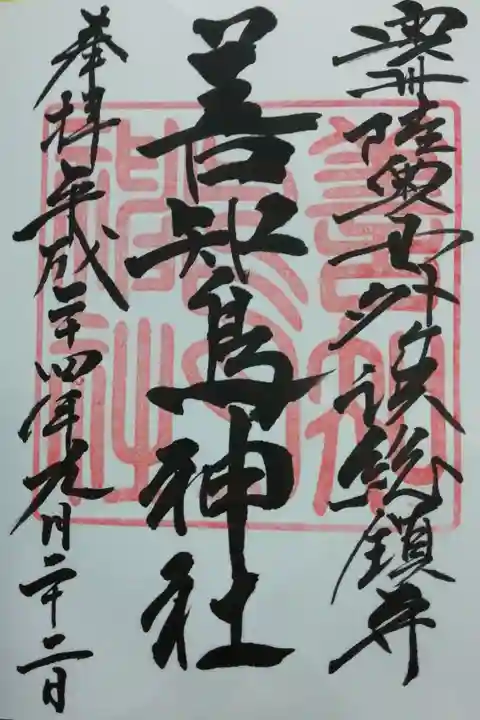 奥州陸奥国外ヶ浜総鎮守
善知鳥神社
奉拝 平成二十四年九月二十二日